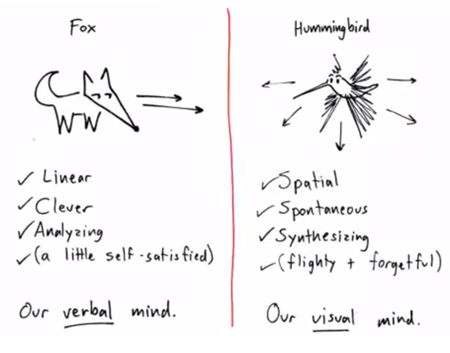 Fox
Linear
Clever
Analyzing
(a little self-satisfied)
Our verbal mind.
Hummingbird
Spatial
Spontaneous
Synthesizing
(flighty + forgetful)
Our visual mind.